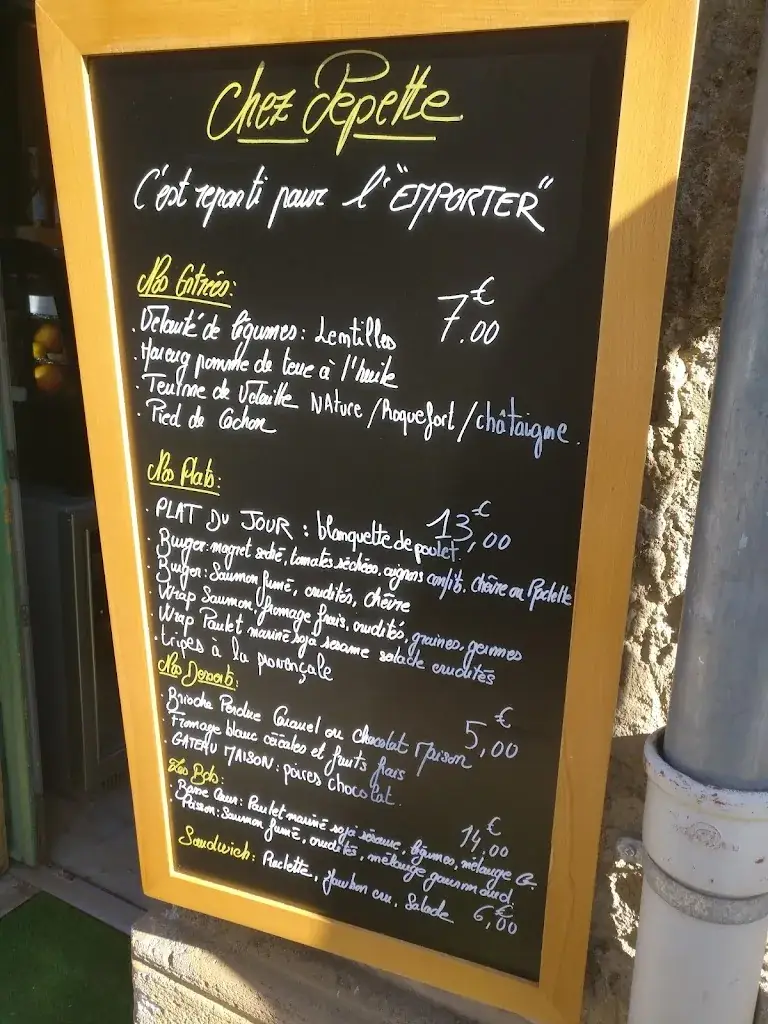 Chez Pepette
C'est reparti pour l'"EMPORTER"
Nos Entrées:
7.00 €
. Velouté de légumes: Lentilles
. Hareng pomme de terre à l'huile
. Terrine de Volaille NAture / Roquefort / châtaigne.
. Pied de Cochon
Nos Plats:
13,00 €
. PLAT DU JOUR : blanquette de poulet.
. Burger: magret séché, tomates séchées, oignons confits, chèvre ou Raclette
. Burger: Saumon fumé, crudités, chèvre
. Wrap Saumon, fromage frais, crudités, graines, germes
. Wrap Poulet mariné soja sesame salade crudités
. tripes à la provençale
Nos Desserts:
5,00 €
. Brioche Perdue Caramel ou chocolat Maison
. Fromage blanc céréales et fruits frais
. GATEAU MAISON: poires chocolat.
Les Bols:
14,00 €
. Basse Cour: Poulet mariné soja sésame, légumes, mélange G.
. Poisson: Saumon fumé, crudités, mélange gourmand.
Sandwich: Raclette, Jambon cru, Salade 6,00 €